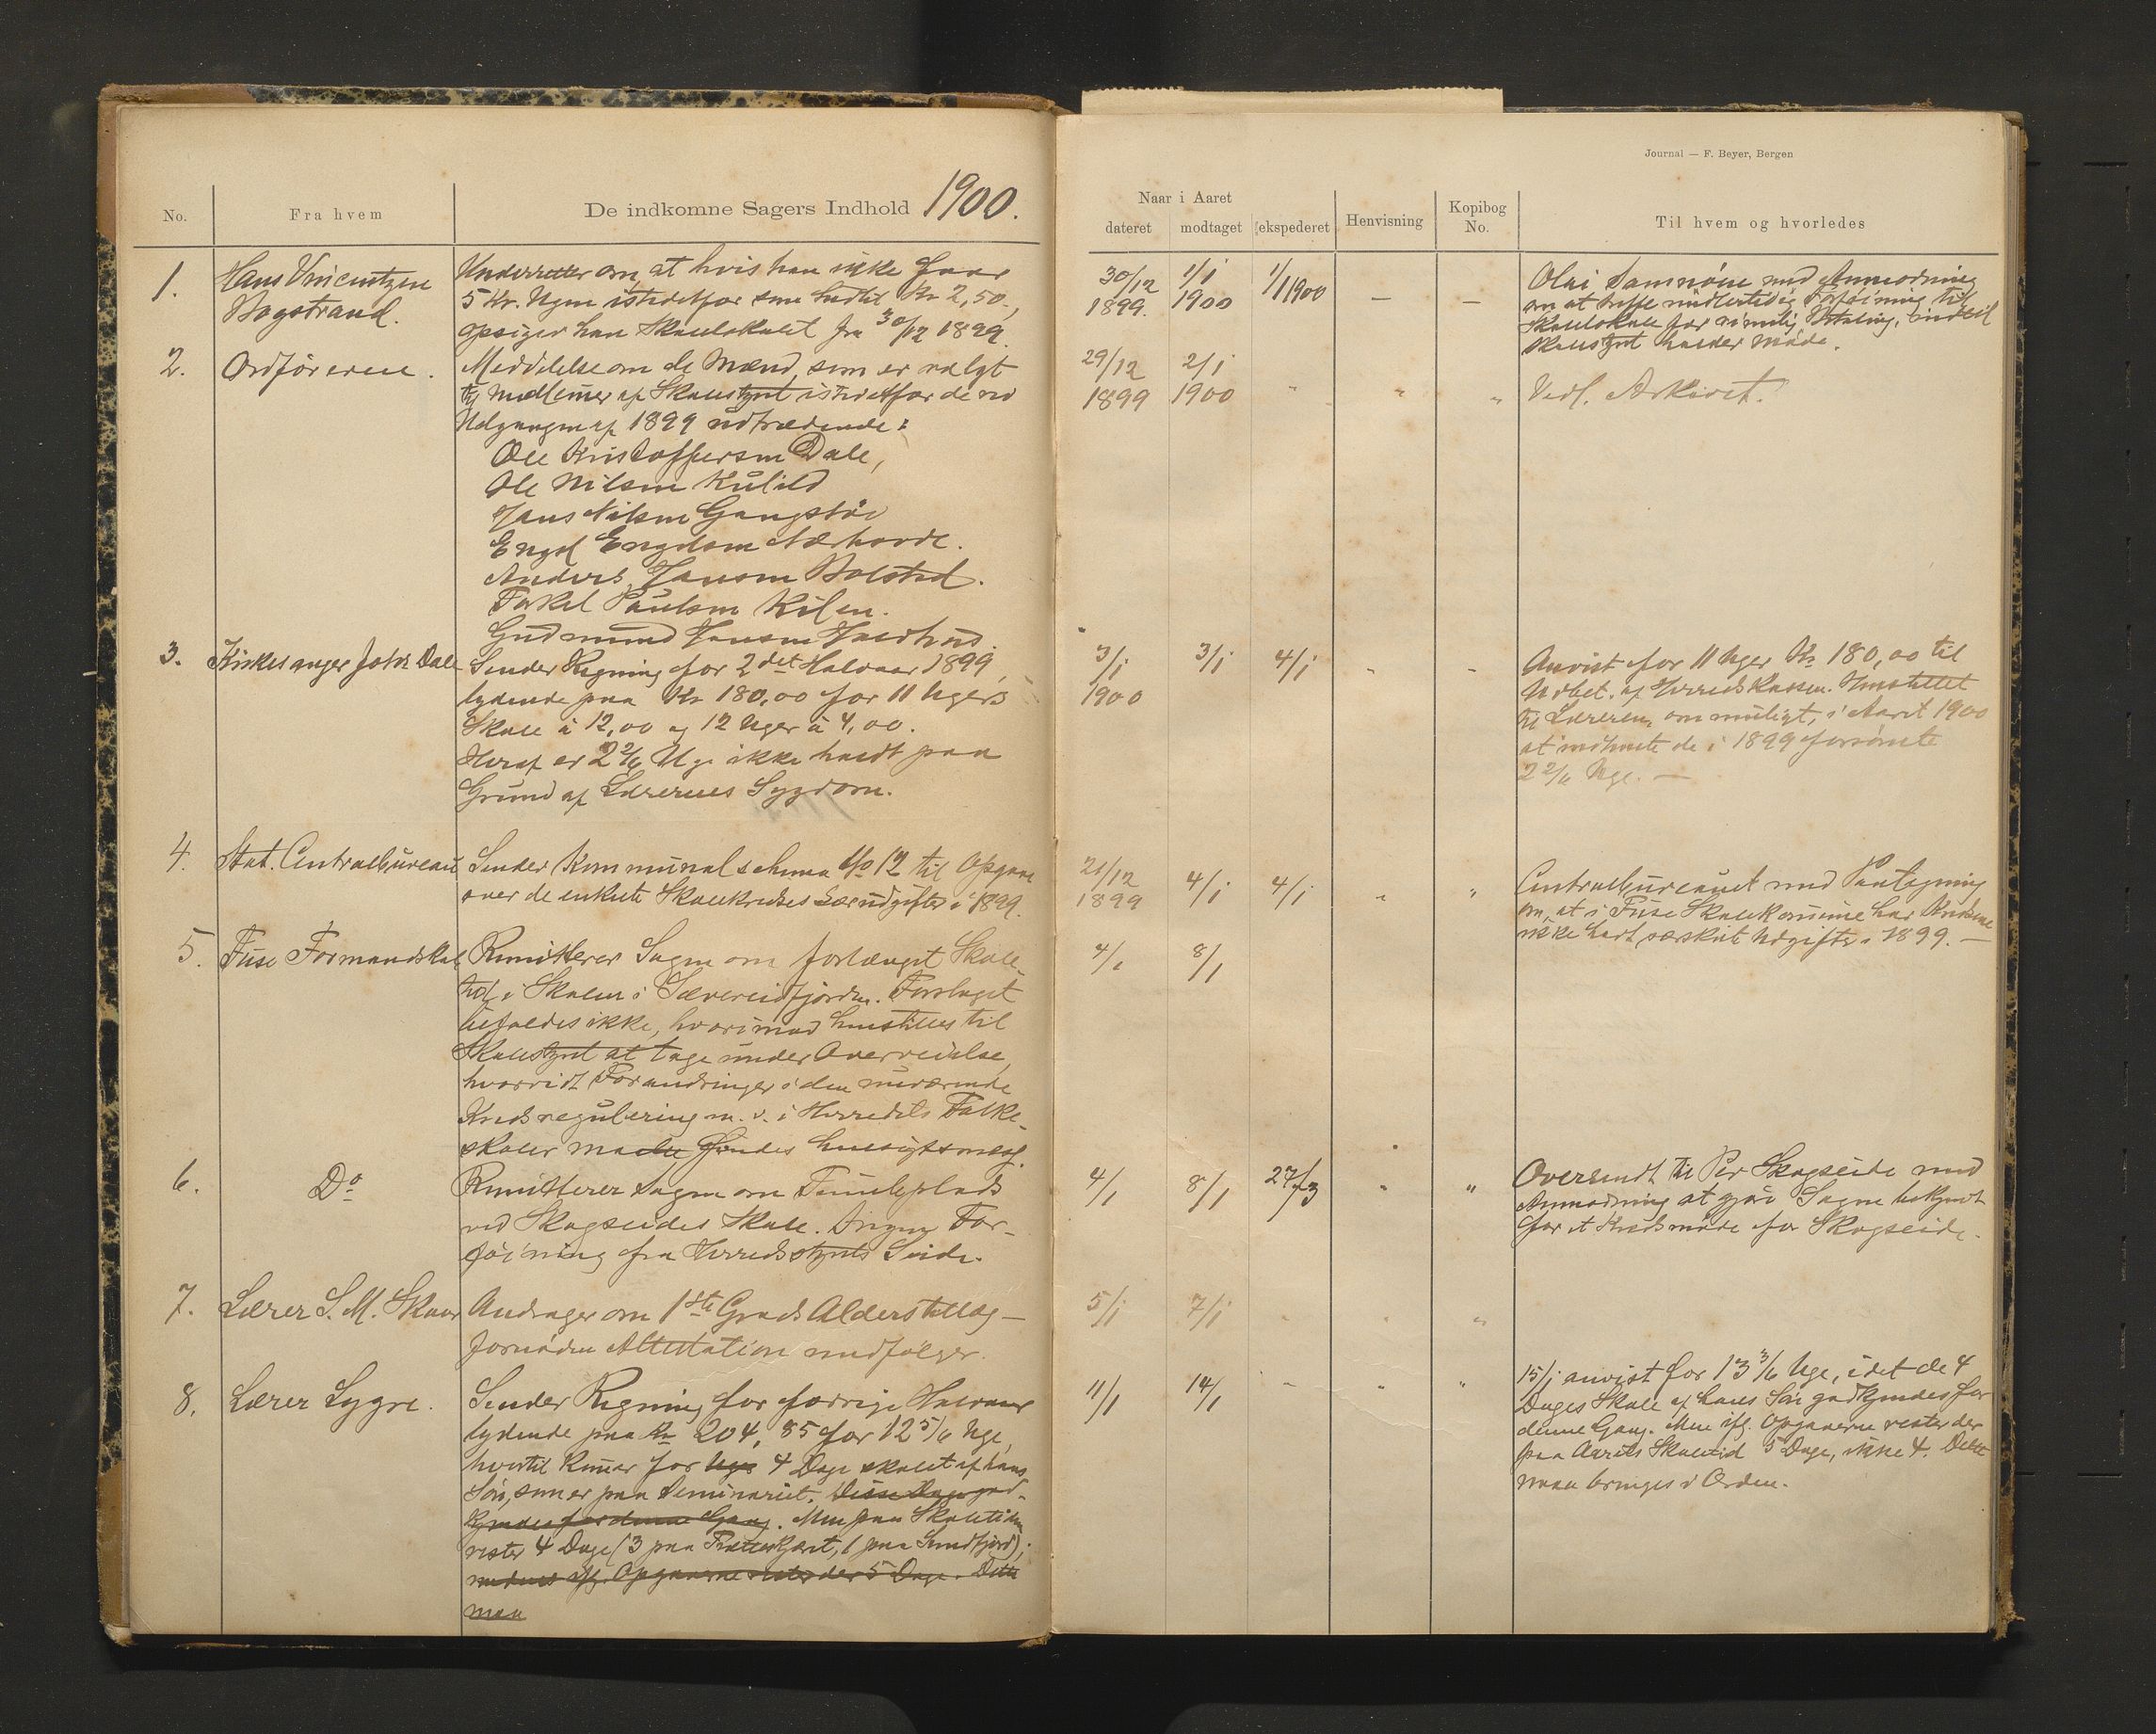 Journal — F. Beyer, Bergen
No.
Fra hvem
De indkomne Sagers Indhold 1900.
Naar i Aaret
dateret
modtaget
ekspederet
Henvisning
Kopibog
No.
Til hvem og hvorledes
1.
Hans Vincentzen
Bogstrand.
Underretter om, at hvis han ikke faar
5 Kr. Ugen istedetfor som hidtil Kr 2,50,
opsiger han Skolelokalet fra 30/12 1899.
30/12
1899.
1/1
1900
1/1 1900
—
—
Olai Samnøen med Anmodning
om at træffe midlertidig Forføining til
Skolelokale for rimelig Betaling, indtil
Skolestyret holder Møde.
2.
Ordføreren.
Meddelelse om de Mænd, som er valgt
til Medlemer af Skolestyret istedetfor de ved
Udgangen af 1899 udtrædende:
Ole Kristoffersen Dale,
Ole Nilsen Kulild
Hans Nilsen Gangstøe
Engel Engelsen Nærhovde.
Anders Hansen Bolstad.
Torkel Paulsen Kilen.
Gudmund Hansen
29/12
1899
2/1
1900
"
"
"
Vedl. Arkivet.
3.
Kirkesanger Johs Dale
Sender Regning for 2det Halvaar 1899,
lydende paa Kr 180,00 for 11 Ugers
Skole à 12,00 og 12 Uger à 4,00.
Heraf er 2 2/6 Uge ikke holdt paa
Grund af Lærerens Sygdom.
3/1
1900
3/1
4/1
"
"
Anvist for 11 Uger Kr 180,00 til
Udbet. af Herredskassen. Henstillet
til Læreren, om muligt, i Aaret 1900
at indhente de i 1899 forsømte
2 2/6 Uge. —
4.
Stat. Centralbureau
Sender Kommunalschema No 12 til Opgave
over de enkelte Skolekredses Særudgifter i 1899.
21/12
1899
4/1
4/1
"
"
Centralbureauet med Paategning
om, at i Fuse Skolekomune har Kredsene
ikke havt særskilte Udgifter i 1899. —
5.
Fuse Formandskab
Remitterer Sagen om forlænget Skole-
tid i Skolen i Sævereidfjorden. Forslaget
bifaldes ikke, hvorimod henstilles til
Skolestyret at tage under Overveielse,
hvorvidt Forandringer i den nuværende
Kredsregulering m. v. i Herredets Folke-
skoler maatte findes hensigtsmæss.
4/1
8/1
6.
Do
Remitterer Sagen om Tomteplads
ved Skogseides Skole. Ingen For-
føining fra Herredsstyrets Side.
4/1
8/1
27/3
"
"
Oversendt til Per Skogseide med
Anmodning at gjøre Sagen bekjendt
for et Kredsmøde for Skogseide.
7.
Lærer S. M. Skaar
Andrager om 1ste Grads Alderstillæg —
fornøden Attestation medfølger.
5/1
7/1
"
"
"
8.
Lærer Lygre.
Sender Regning for forrige Halvaar
lydende paa Kr 204,85 for 12 5/6 Uge,
hvortil kommer for Uger 4 Dage skolet af hans
Søn, som er paa Seminariet. Disse Dage god-
kjendes for denne Gang. Men paa Skoletiden
rester 4 Dage (3 paa, 1 paa);
medens ifg. Opgaverne rester der 5 Dage. Dette
maa
11/1
14/1
"
"
"
15/1 anvist for 13 3/6 Uge, idet de 4
Dages Skole af hans Søn godkjendes for
denne Gang. Men ifg. Opgaverne rester der
paa Aarets Skoletid 5 Dage, ikke 4. Dette
maa bringes i Orden.